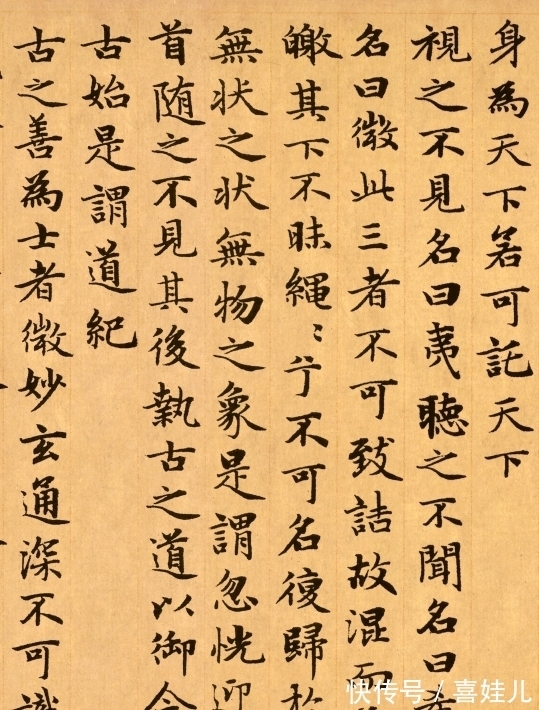 身為天下若可託天下
視之不見名曰夷聴之不聞名曰希
名曰微此三者不可致詰故混而
皦其下不昧繩〻兮不可名復歸於
無状之状無物之象是謂忽恍迎
首随之不見其後執古之道以御今
古始是謂道紀
古之善為士者微妙玄通深不可識
快传号/喜娃儿